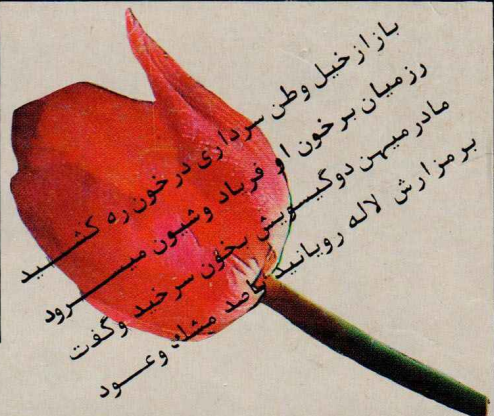 باز از خیل وطن سرداری در خون ره کشید
رزمیان بر خون او فریاد و شون میرود
مادر میهن دو گیسویش بخون سر خید و گفت
بر مزارش لاله رویانید باصد مشک و عود